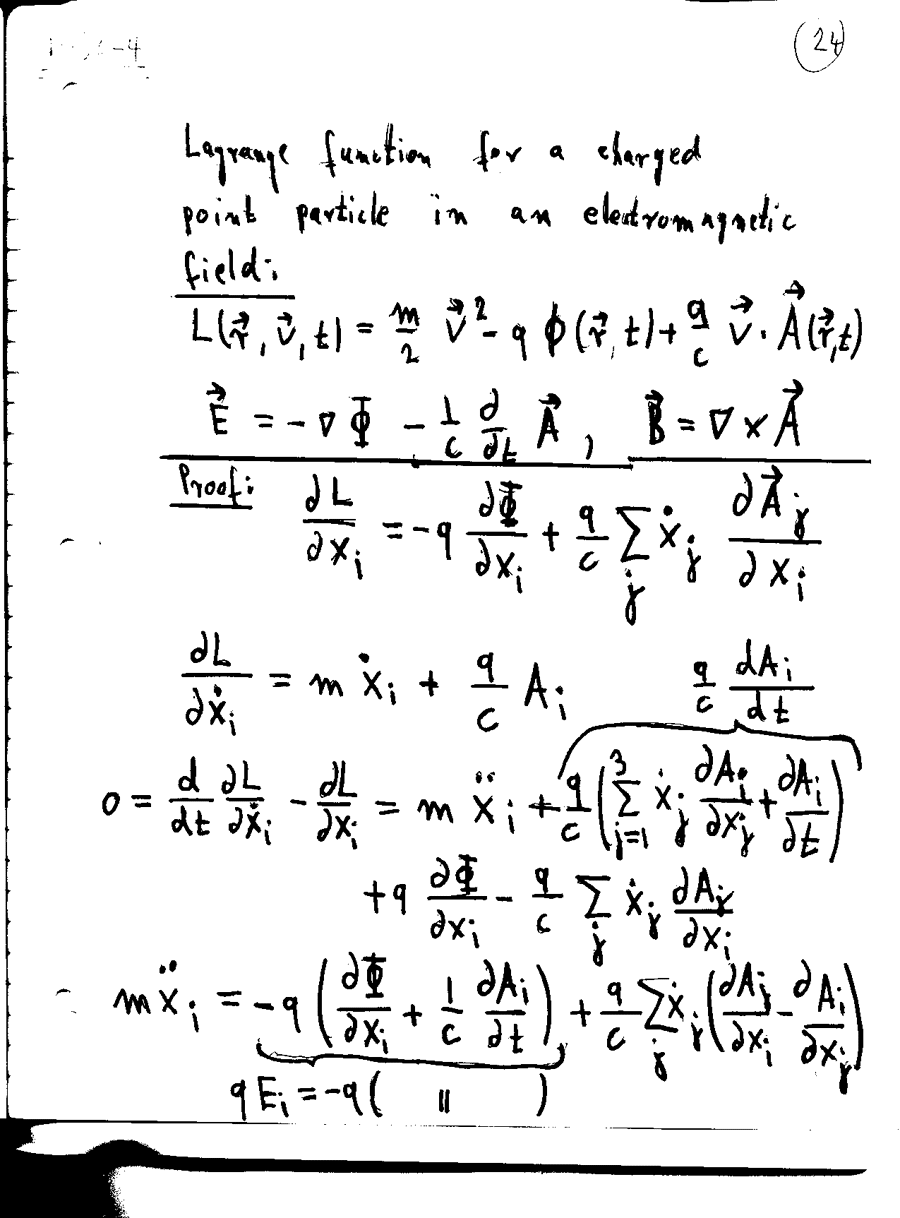 24
Lagrange function for a charged
point particle in an electromagnetic
field:
L(r⃗, v⃗, t) = m/2 v⃗² - q ϕ(r⃗, t) + q/c v⃗ · A⃗(r⃗, t)
E⃗ = -∇Φ - 1/c ∂/∂t A⃗, B⃗ = ∇ × A⃗
Proof: ∂L/∂xᵢ = -q ∂Φ/∂xᵢ + q/c ∑ⱼ ẋⱼ ∂A⃗ⱼ/∂xᵢ
∂L/∂ẋᵢ = m ẋᵢ + q/c Aᵢ q/c dAᵢ/dt
0 = d/dt ∂L/∂ẋᵢ - ∂L/∂xᵢ = m ẍᵢ + q/c (∑ⱼ₌₁³ ẋⱼ ∂Aᵢ/∂xⱼ + ∂Aᵢ/∂t)
+ q ∂Φ/∂xᵢ - q/c ∑ⱼ ẋⱼ ∂Aⱼ/∂xᵢ
mẍᵢ = -q (∂Φ/∂xᵢ + 1/c ∂Aᵢ/∂t) + q/c ∑ⱼ ẋⱼ (∂Aⱼ/∂xᵢ - ∂Aᵢ/∂xⱼ)
qEᵢ = -q( " )